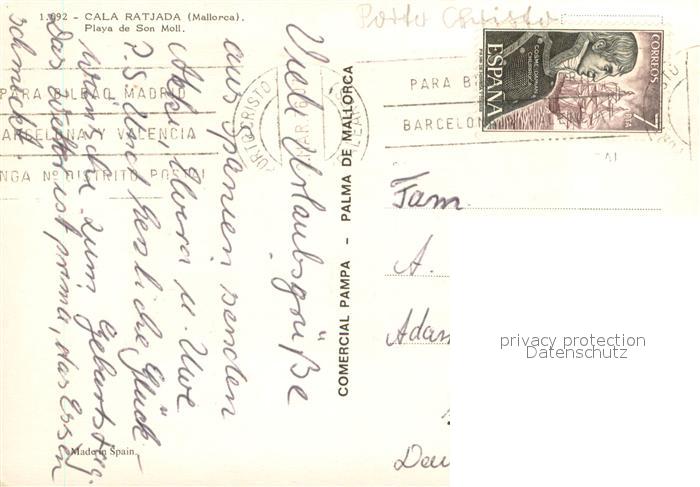 1.092 - CALA RATJADA (Mallorca).
Playa de Son Moll.
Porto Cristo
Viele Urlaubsgrüße
aus Spanien senden
u. Uwe
P.S. Und herzliche Glück-
wünsche zum Geburtstag.
Das Wetter ist prima, das Essen
schmeckt.
Made in Spain.
COMERCIAL PAMPA - PALMA DE MALLORCA
PARA BILBAO MADRID
BARCELONA Y VALENCIA
PONGA Nº DISTRITO POSTAL
PORTO CRISTO
MAR
PARA BI
BARCELON
CORREOS
ESPAÑA
COSME DAMIAN CHURRUCA
7
PTA
Fam.
A.
Adam
Deu
privacy protection
Datenschutz